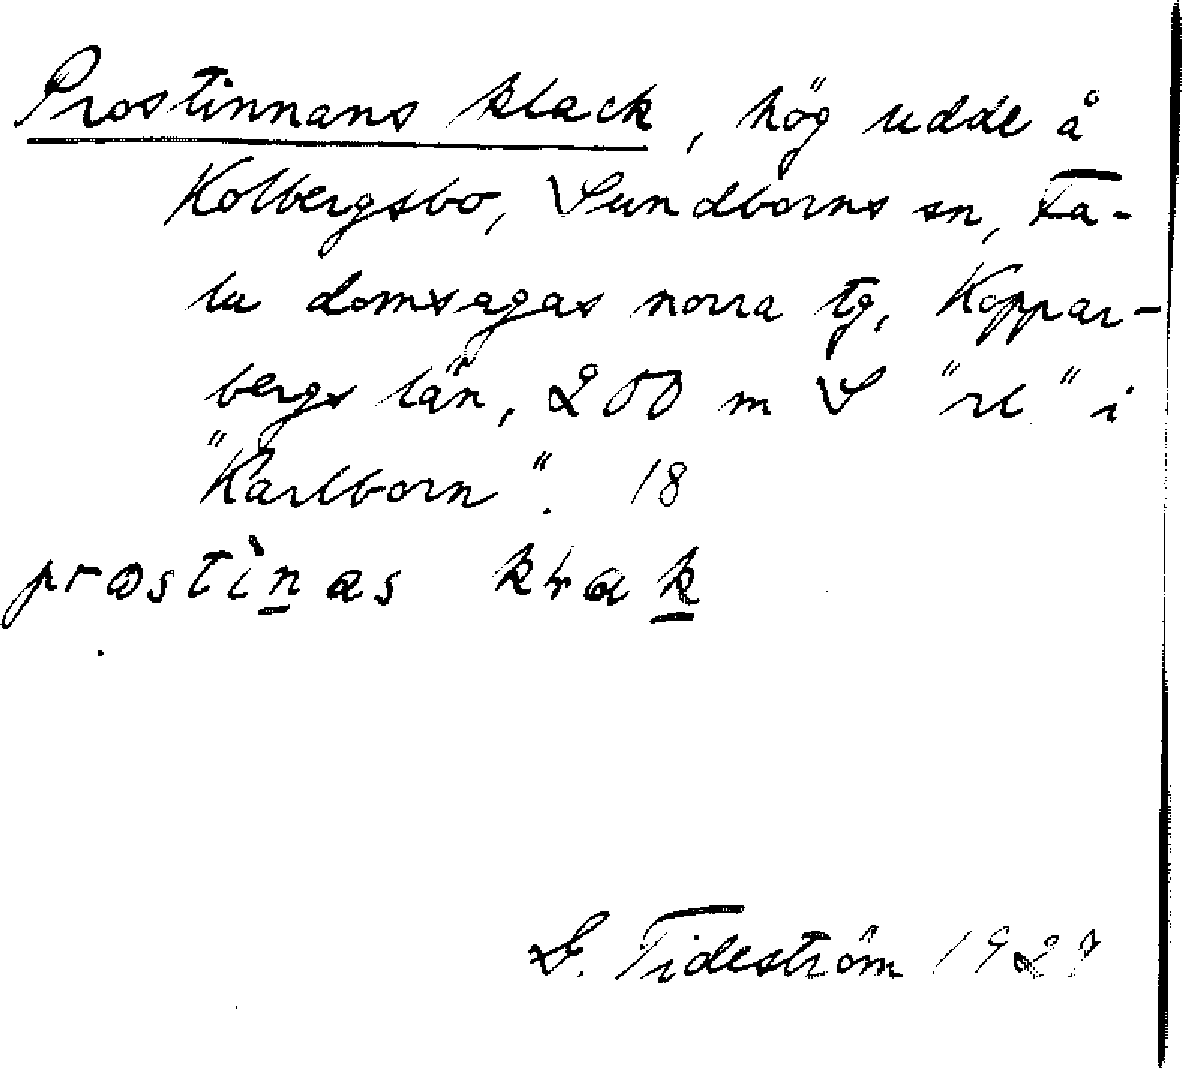 Prostinnans klack, hög udde å
Kolbergsbo, Sundborns sn, Fa-
lu domsagas norra tg, Koppar-
bergs län, 200 m S "rl" i
"Karlborn". 18
prostìnas krak
G. Tideström